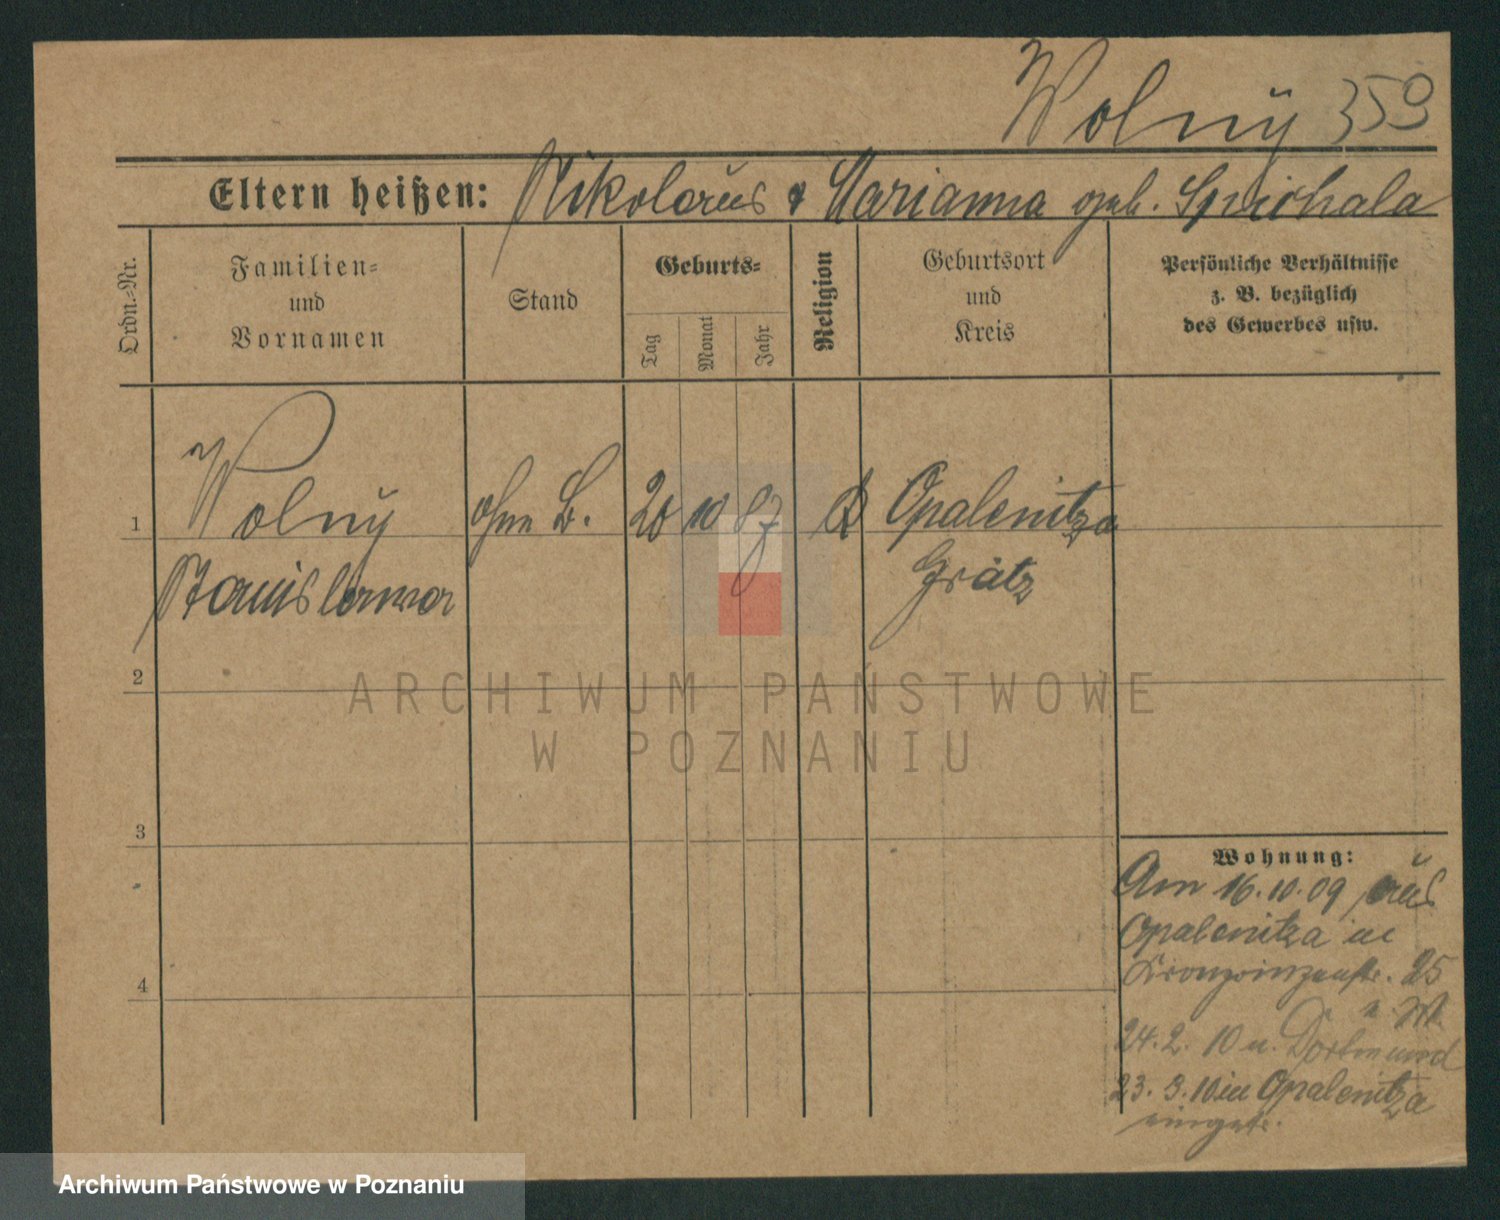 Wolny 353
Eltern heißen: Nikolaus & Marianna geb. Spichala
Ordn.-Nr.
Familien-
und
Vornamen
Stand
Geburts-
Tag
Monat
Jahr
Religion
Geburtsort
und
Kreis
Persönliche Verhältnisse
z. B. bezüglich
des Gewerbes usw.
1
Wolny ohne B. 20 10 87 Opalenitza
Stanislawa Grätz
2
ARCHIWUM PAŃSTWOWE
W POZNANIU
3
Wohnung:
Am 16.10.09 aus
Opalenitza in
Kronprinzenstr. 25
4
24.2.10 n. Dortmund
23.3.10 in Opalenitza
Archiwum Państwowe w Poznaniu